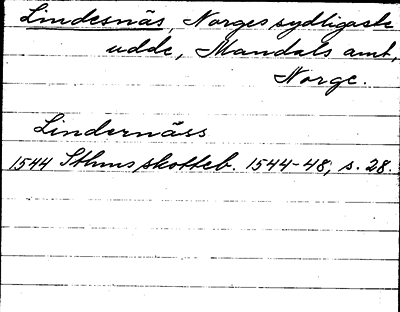 Lindesnäs, Norges sydligaste
udde, Mandals amt,
Norge.
Lindernäss
1544 Sthms skotteb. 1544-48, s. 28.